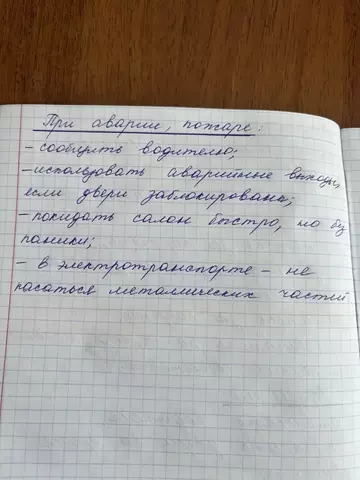 При аварии, пожаре:
- сообщить водителю;
- использовать аварийные выходы,
если двери заблокированы;
- покидать салон быстро, но без
паники;
- в электротранспорте - не
касаться металлических частей